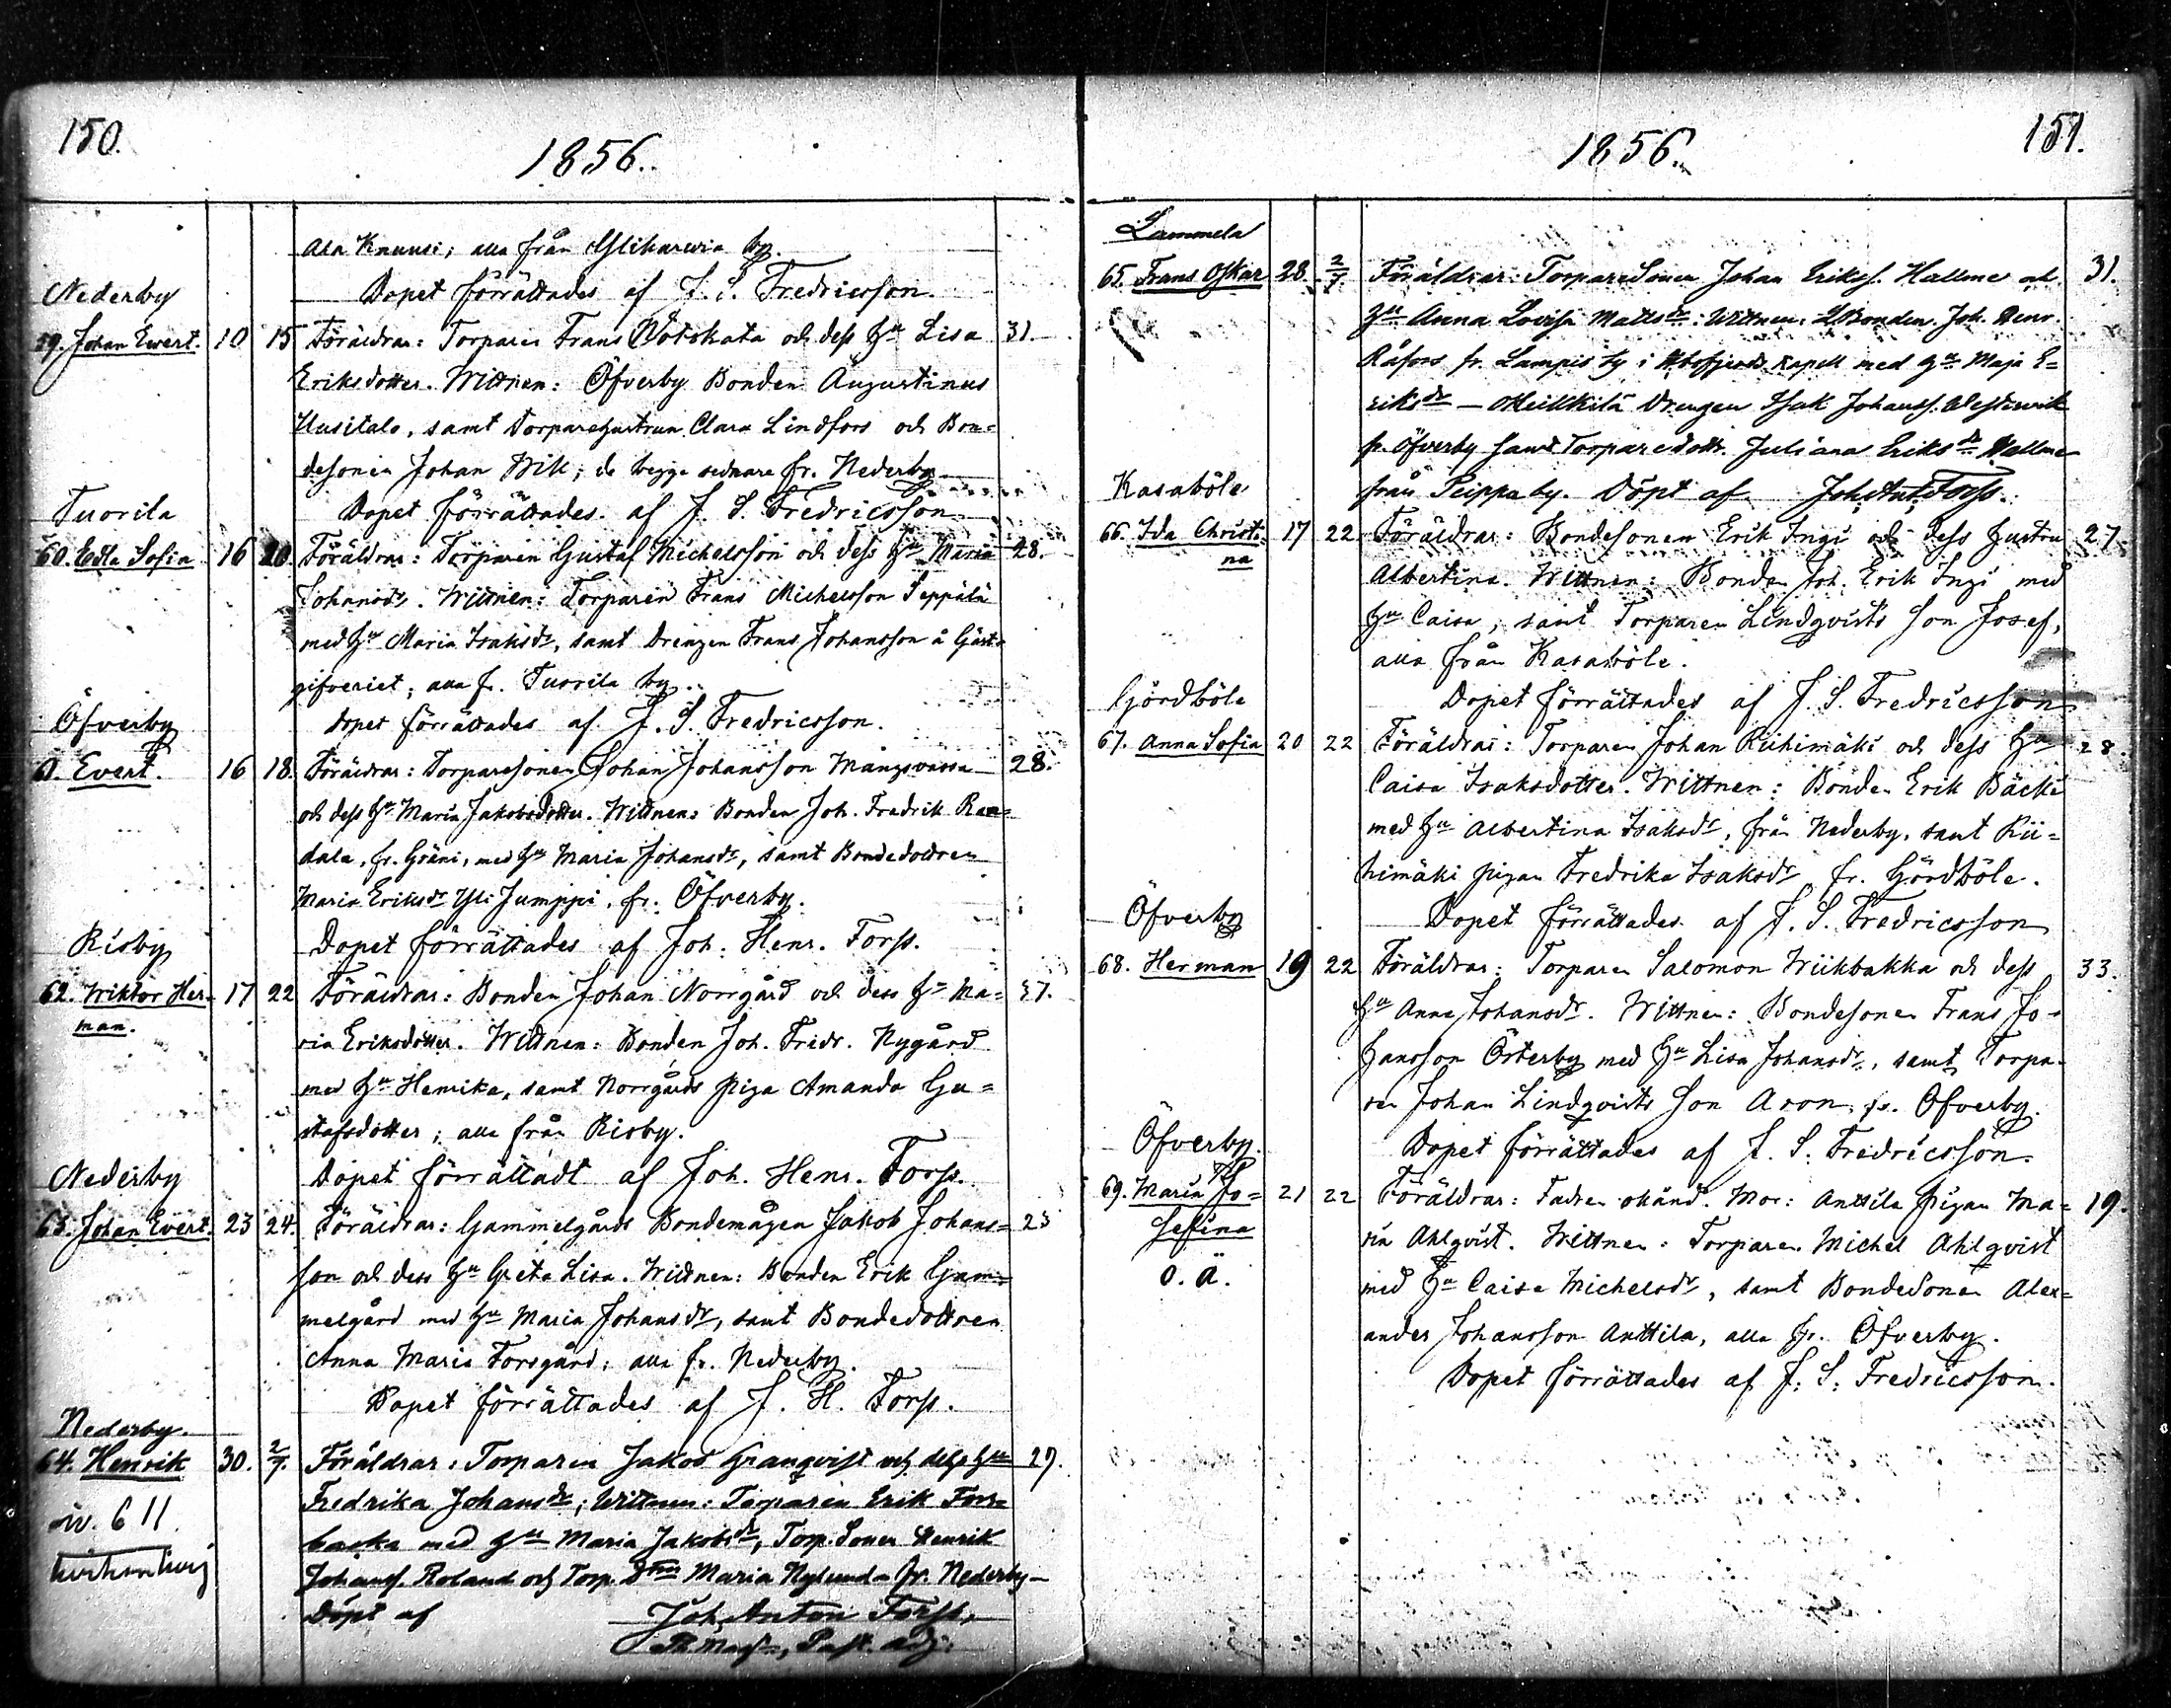 150.
1856.
Ala Knuusi; alla från Ylikarwia by.
Dopet förrättades af J. S. Fredricsson.
Nederby
59. Johan Ewert. 10 15 Föräldrar: Torparen Frans Wotskata och dess Hu Lisa 31.
Eriksdotter. Wittnen: Öfverby Bonden Augustinus
Uusitalo, samt Torparehustrun Clara Lindfors och Bon=
desonen Johan Wik; de begge sednare fr. Nederby
Dopet förrättades af J. S. Fredricsson
Tuorila
60. Edla Sofia 16 20. Föräldrar: Torparen Gustaf Michelsson och dess Hu Maria 28.
Johansdr. Wittnen: Torparen Frans Michelsson Seppälä
med Hu Maria Isaksdr, samt Drengen Frans Johansson å Gäst=
gifveriet; alla fr. Tuorila by.
Dopet förrättades af J. S. Fredricsson.
Öfverby
61. Evert. 16 18. Föräldrar: Torparesonen Johan Johansson Mangsvassa 28.
och dess Hu Maria Jakobsdotter. Wittnen: Bonden Joh. Fredrik Ran=
dala, fr. Gräni, med Hu Maria Johansdr, samt Bondedottren
Maria Eriksdr Yli Jumppi, fr. Öfverby.
Dopet förrättades af Joh. Henr. Forss.
Risby
62. Wiktor Her= 17 22 Föräldrar: Bonden Johan Norrgård och dess Hu Ma= 37.
man.
ria Eriksdotter. Wittnen: Bonden Joh. Fridr. Nygård
med Hu Henrika, samt Norrgårds piga Amanda Gu=
stafsdotter; alla från Risby.
Dopet förrättadt af Joh. Henr. Forss.
Nederby
63. Johan Evert. 23 24. Föräldrar: Gammelgårds Bondemågen Jakob Johans= 23
son och dess Hu Greta Lisa. Wittnen: Bonden Erik Gam=
melgård med Hu Maria Johansdr, samt Bondedottren
Anna Maria Forsgård; alla fr. Nederby.
Dopet förrättades af J. H. Forss.
Nederby.
64. Henrik 30. 2/7. Föräldrar: Torparen Jakob Granqvist och dess Hu 29.
Fredrika Johansdr; Wittnen: Torparen Erik Fors=
backa med Hu Maria Jakobsdr, Torp. Sonen Henrik
Johanss. Roland och Torp. Dtren Maria Nylund fr. Nederby
Döpt af Joh. Anton Forss,
Ph. Mag., Past. adj.
151.
1856.
Lammela
65. Frans Oskar 28. 2/7. Föräldrar: Torparesonen Johan Erikss. Hallme och 31.
Hu Anna Lovisa Mattsdr: Wittnen: Bonden Joh. Henr.
Råfors fr. Lampis by i kapell med Hu Maja E=
riksdr — Meilkilä Drengen Isak Johanss. Westervik
fr. Öfverby samt Torparedottr. Juliana Eriksdr Hallme
från Peippu by. Döpt af Joh. Ant. Forss.
Kasaböle
66. Ida Christi= 17 22 Föräldrar: Bondesonen Erik Ingi och dess Hustru 27.
na
Albertina. Wittnen: Bonden Joh. Erik Ingi med
Hu Caisa, samt Torparen Lindqvists son Josef,
alla från Kasaböle.
Dopet förrättades af J. S. Fredricsson
Gördböle
67. Anna Sofia 20 22 Föräldrar: Torparen Johan Riihimäki och dess Hu 28.
Caisa Isaksdotter. Wittnen: Bonden Erik Bäcki
med Hu Albertina Isaksdr, från Nederby, samt Rii=
himäki pigan Fredrika Isaksdr fr. Gördböle.
Dopet förrättades af J. S. Fredricsson
Öfverby
68. Herman 19 22 Föräldrar: Torparen Salomon Wiikbakka och dess 33.
Hu Anna Johansdr. Wittnen: Bondesonen Frans Jo=
hansson Österby med Hu Lisa Johansdr, samt Torpa=
ren Johan Lindqvists son Aron fr. Öfverby.
Dopet förrättades af J. S. Fredricsson.
Öfverby.
69. Maria Jo= 21 22 Föräldrar: Fadren okänd. Mor: Anttila pigan Ma= 19.
sefina
o. ä.
ria Ahlqvist. Wittnen: Torparen Michel Ahlqvist
med Hu Caisa Michelsdr, samt Bondesonen Alex=
ander Johansson Anttila, alla fr. Öfverby.
Dopet förrättades af J. S. Fredricsson.